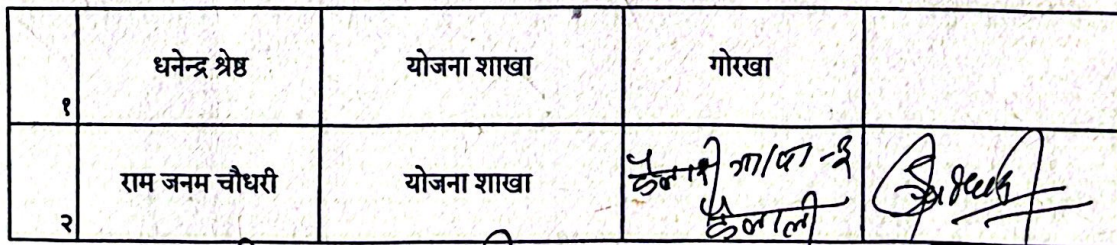 धनेन्द्र श्रेष्ठ योजना शाखा गोरखा
१
राम जनम चौधरी योजना शाखा
२ कैलाली